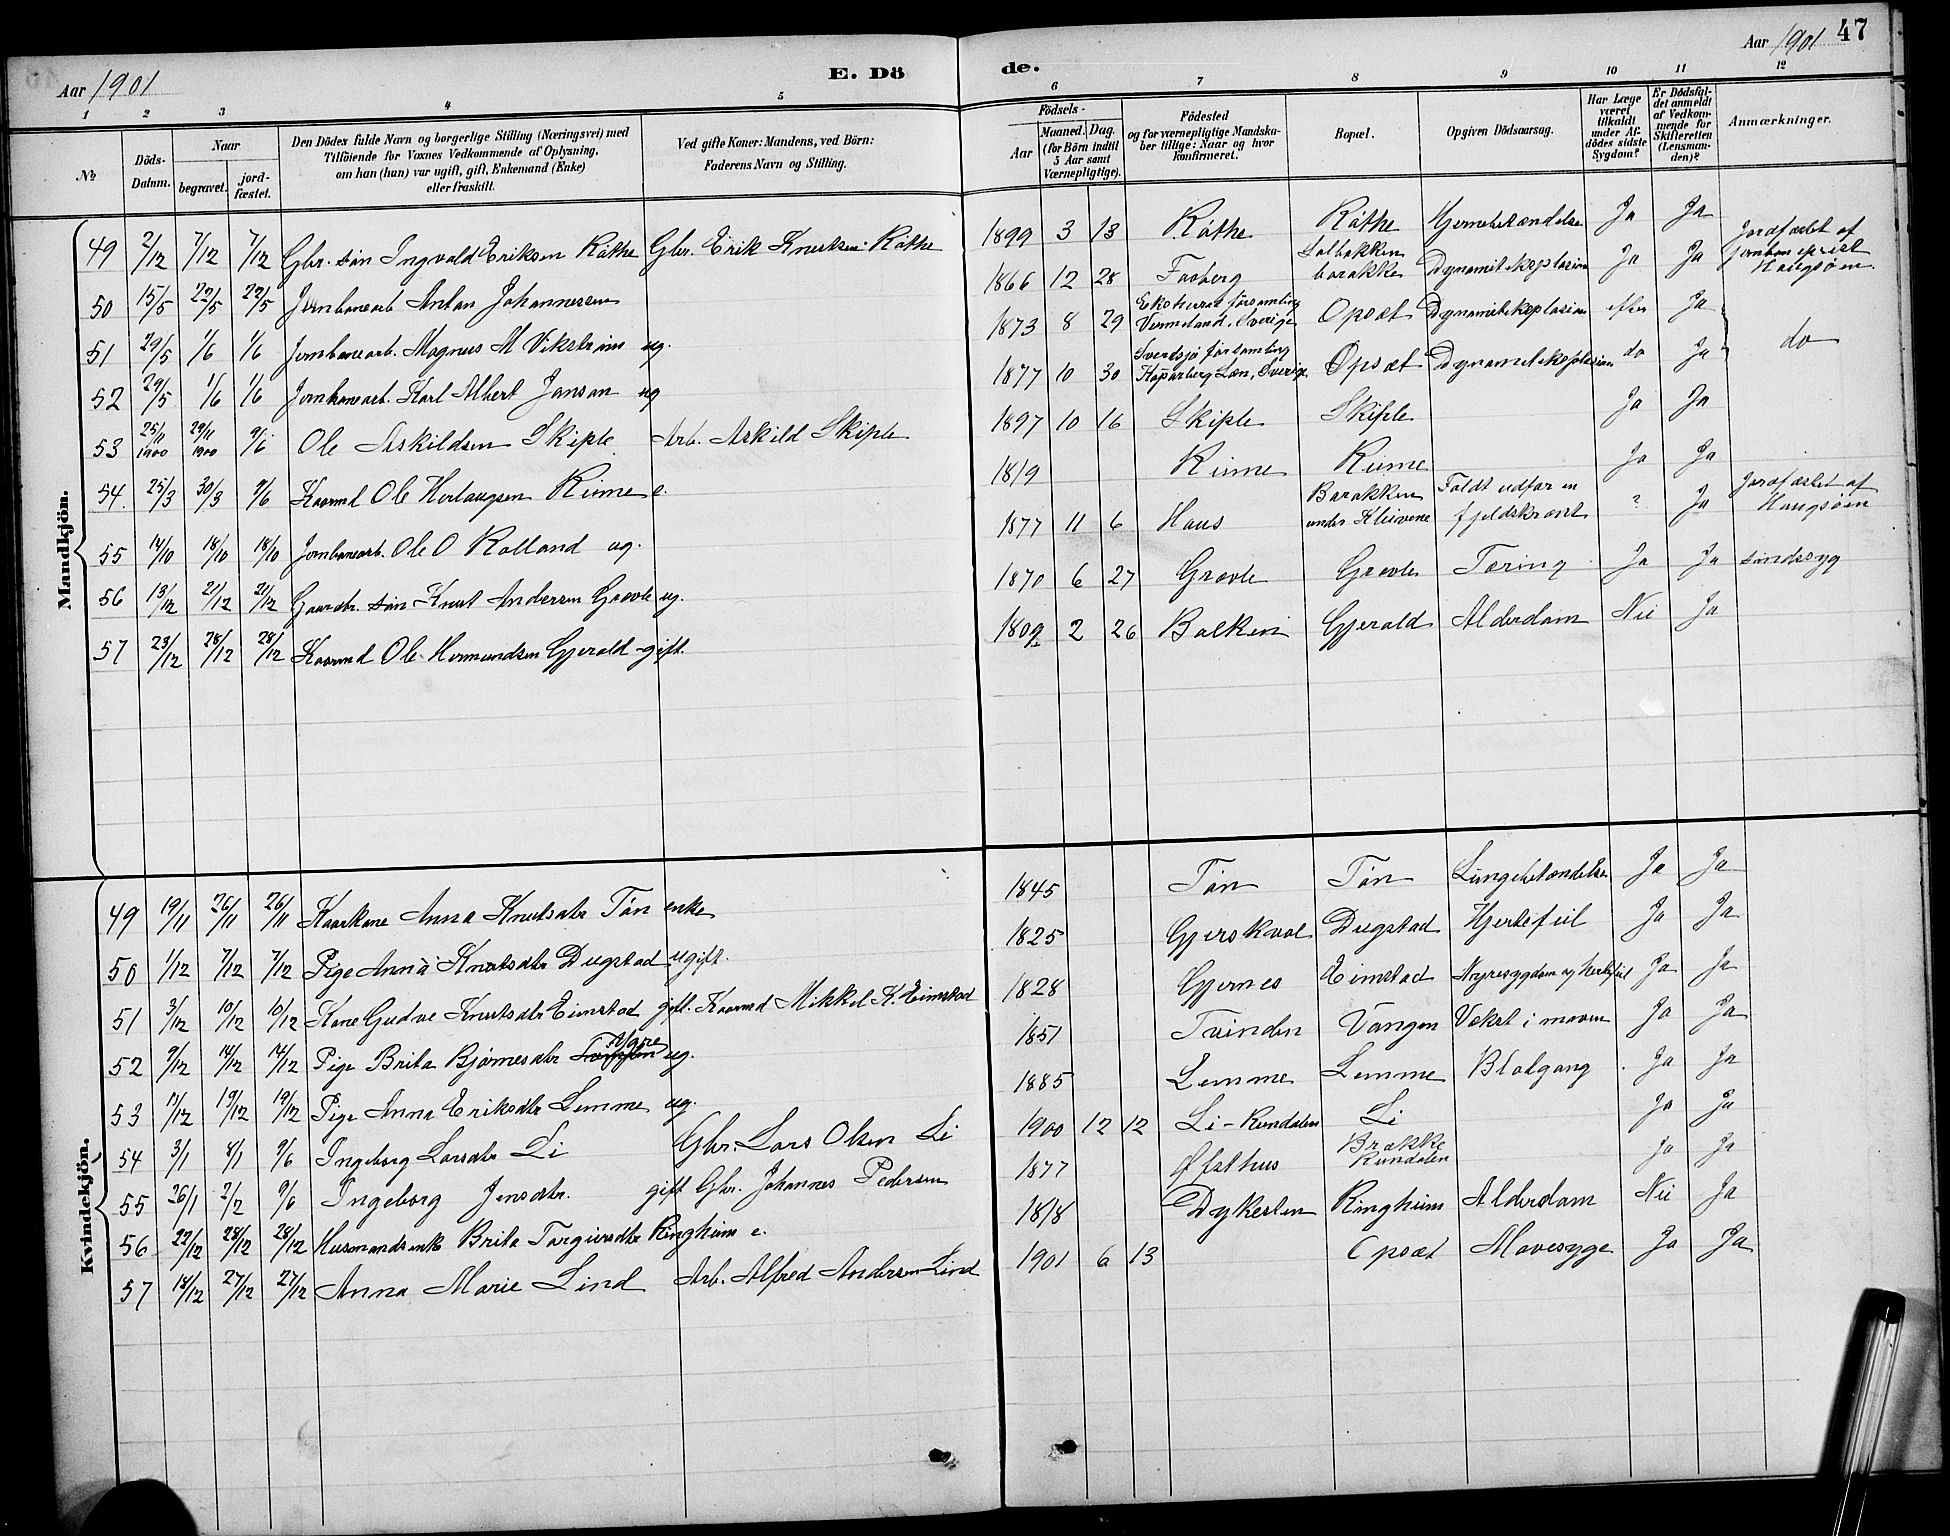 Aar 1901 E. Dö de. Aar 1901 47
1 2 3 4 5 6 7 8 9 10 11 12
№ Döds-Datum. Naar begravet. jord-fæstet. Den Dödes fulde Navn og borgerlige Stilling (Næringsvei) med Tilföiende for Voxnes Vedkommende af Oplysning, om han (hun) var ugift, gift, Enkemand (Enke) eller fraskilt. Ved gifte Koner: Mandens, ved Börn: Faderens Navn og Stilling. Födsels- Aar Maaned. Dag. (for Börn indtil 5 Aar samt Værnepligtige). Födested og for værnepligtige Mandska-ber tillige: Naar og hvor konfirmeret. Bopæl. Opgiven Dödsaarsag. Har Læge været tilkaldt under Af-dödes sidste Sygdom? Er Dödsfal-det anmeldt af Vedkom-mende for Skifteretten (Lensman-den)? Anmærkninger.
Mandkjön.
49 2/12 7/12 7/12 Gbr. sön Ingvald Eriksen Röthe Gbr. Erik Knutsen Röthe 1899 3 13 Röthe Röthe Hjernebetændelse Ja Ja
50 15/5 22/5 22/5 Jernbanearb. Anton Johannessen 1866 12 28 Faaberg Solbakken barakke Dynamiteksplosion Ja Ja Jordfæstet af Haugsöen.
51 29/5 1/6 1/6 Jernbanearb. Magnus M Vikström ug. 1873 8 29 Ekshärad församling Vermeland, Sverige Opsæt Dynamiteksplosion efter Ja do
52 29/5 1/6 1/6 Jernbanearb. Karl Albert Janson ug 1877 10 30 Sverdsjö församling Kopparberg Læn, Sverige Opsæt Dynamiteksplosion do Ja
53 25/11 1900 29/11 1900 9/6 Ole Askildsen Skiple Arb. Askild Skiple 1897 10 16 Skiple Skiple Ja Ja
54. 25/3 30/3 9/6 Kaarmd Ole Herlaugsen Rime e. 1819 Rime Rime Ja Ja
55 14/10 18/10 18/10 Jernbanearb. Ole O Rolland ug. 1877 11 6 Haus Barakken under Kleivene Faldt udfor en fjeldskrænt ? Ja Jordfæstet af Haugsöen
56 13/12 21/12 21/12 Gaardbr. sön Knut Andersen Grovle ug. 1870 6 27 Grovle Grovle Tæring Ja Ja sindssyg
57 23/12 28/12 28/12 Kaarmd Ole Hermundsen Gjerald gift. 1809 2 26 Bolken Gjerald Alderdom Nei Ja
Kvindekjön.
49 19/11 26/11 26/11 Kaarkone Anna Knutsdtr Tön enke 1845 Tön Tön Lungebetændelse Ja Ja
50 1/12 7/12 7/12 Pige Anna Knutsdtr Dugstad ugift. 1825 Gjerskvol Dugstad Hjertefeil Ja Ja
51 3/12 10/12 10/12 Kone Gudve Knutsdtr Eimstad gift. Kaarmd Mikkel K. Eimstad 1828 Gjernes Eimstad Nyresygdom og hjertefeil Ja Ja
52 9/12 14/12 14/12 Pige Brita Bjørnesdtr ug. 1851 Tvinden Vangen Vækst i maven Ja Ja
53 17/12 19/12 19/12 Pige Anna Eriksdtr Lemme ug. 1885 Lemme Lemme Blodgang Ja Ja
54 3/1 8/1 9/6 Ingeborg Larsdtr Li Gbr. Lars Olsen Li 1900 12 12 Li - Rundalen Li Ja Ja
55 26/1 2/2 9/6 Ingeborg Jensdtr. gift Gbr. Johannes Pedersen 1877 Øfsthus Brække Rundalen Ja Ja
56 22/12 28/12 28/12 Husmandsenke Brita Torgiersdtr Ringheim e. 1818 Dykesten Ringheim Alderdom Nei Ja
57 18/12 27/12 27/12 Anna Marie Lind Arb. Alfred Andersen Lind 1901 6 13 Opsæt Mavesyge Ja Ja